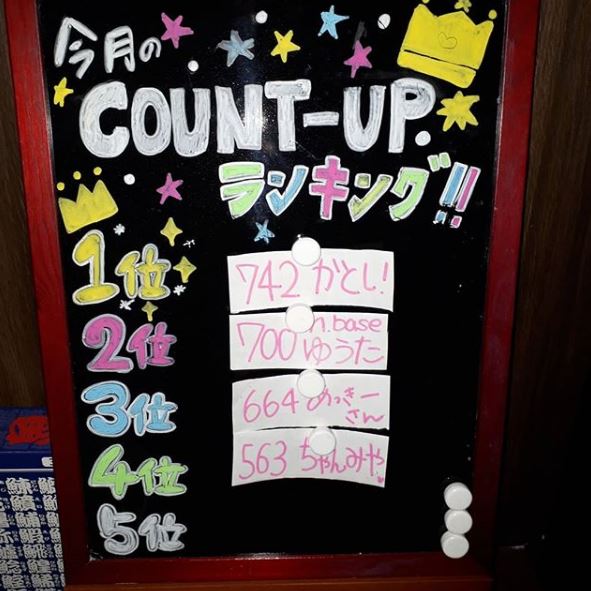 今月の
COUNT-UP
ランキング!!
1位
742 がとし!
2位
n.base
700 ゆうた
3位
664 めっきー
さん
4位
563 ちゃんみや
5位